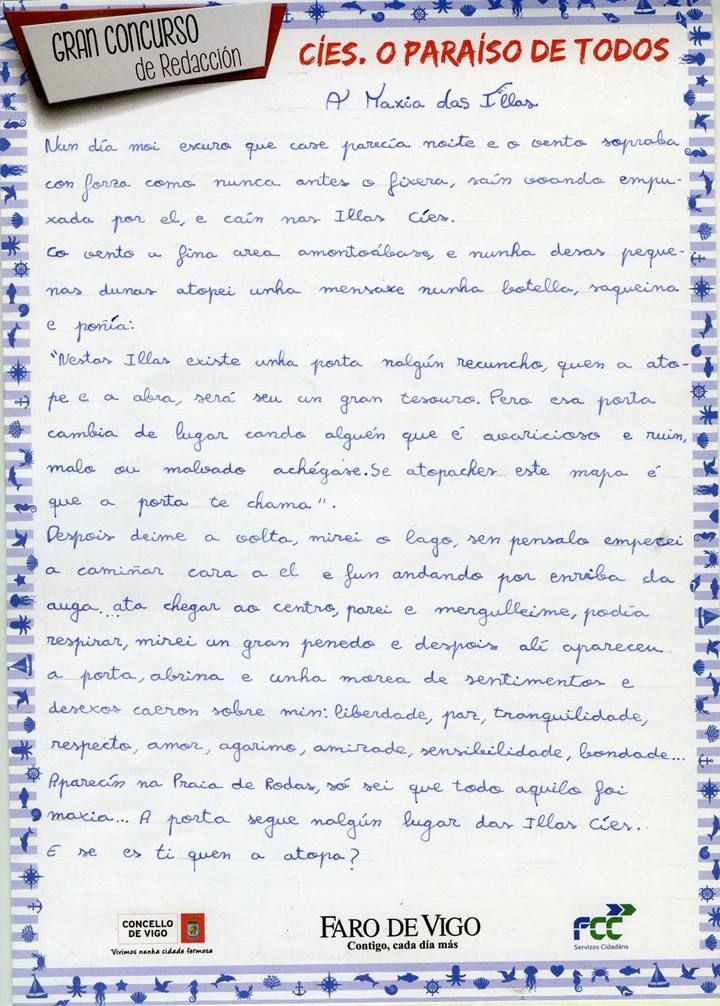 GRAN CONCURSO
de Redacción
CÍES. O PARAÍSO DE TODOS
A Maxia das Illas
Nun día moi escuro que case parecía noite e o vento sopraba
con forza como nunca antes o fixera, saín voando empu-
xada por el, e caín nas Illas Cíes.
Co vento a fina area amontoábase, e nunha desas peque-
nas dunas atopei unha mensaxe nunha botella, saqueina
e poñía:
"Nestas Illas existe unha porta nalgún recuncho, quen a ato-
pe e a abra, será seu un gran tesouro. Pero esa porta
cambia de lugar cando alguén que é avaricioso e ruin,
malo ou malvado achégase. Se atopaches este mapa é
que a porta te chama".
Despois deime a volta, mirei o lago, sen pensalo empecei
a camiñar cara a el e fun andando por enriba da
auga... ata chegar ao centro, parei e mergulleime, podía
respirar, mirei un gran penedo e despois alí apareceu
a porta, abrina e unha morea de sentimentos e
desexos caeron sobre min: liberdade, paz, tranquilidade,
respecto, amor, agarimo, amizade, sensibilidade, bondade...
Aparecín na Praia de Rodas, só sei que todo aquilo foi
maxia... A porta segue nalgún lugar das Illas Cíes..
E se es ti quen a atopa?
CONCELLO
DE VIGO
Vivimos nunha cidade fermosa
FARO DE VIGO
Contigo, cada día más
FCC
Servizos Cidadáns